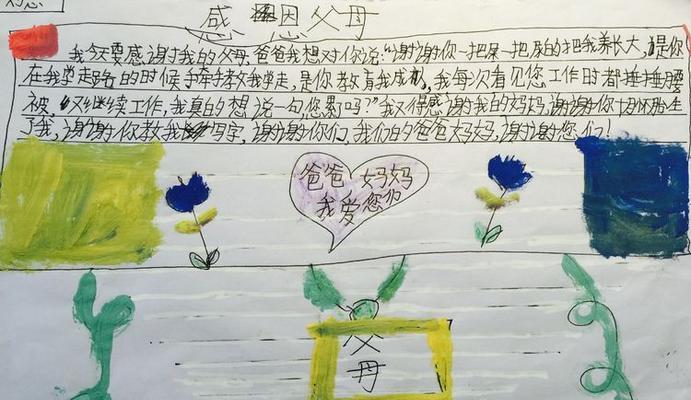 感恩父母
我今天要感谢我的父母.爸爸我想对你说:"谢谢你一把屎一把尿的把我养长大,是你
在我学走路的时候手牵手教我学走,是你教育我成,我每次看见您工作时都捶捶腰
被,又继续工作,我真的想说一句,您累吗?"我又得感谢我的妈妈,谢谢你怀胎生
了我,谢谢你教我写字,谢谢你们,我们的爸爸妈妈,谢谢您们!
爸爸 妈妈
我爱您们
父
母